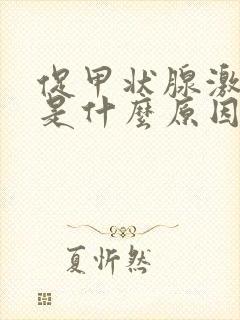 促甲状腺激
是什麼原因
夏忻然